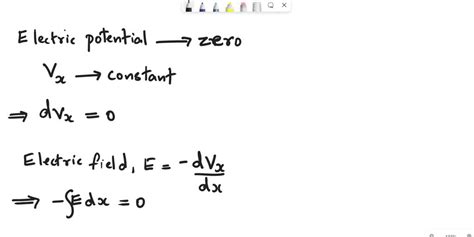 Electric potential ⟶ zero
Vx ⟶ constant
⇒ dVx = 0
Electric field, E = -dVx/dx
⇒ -∫E dx = 0